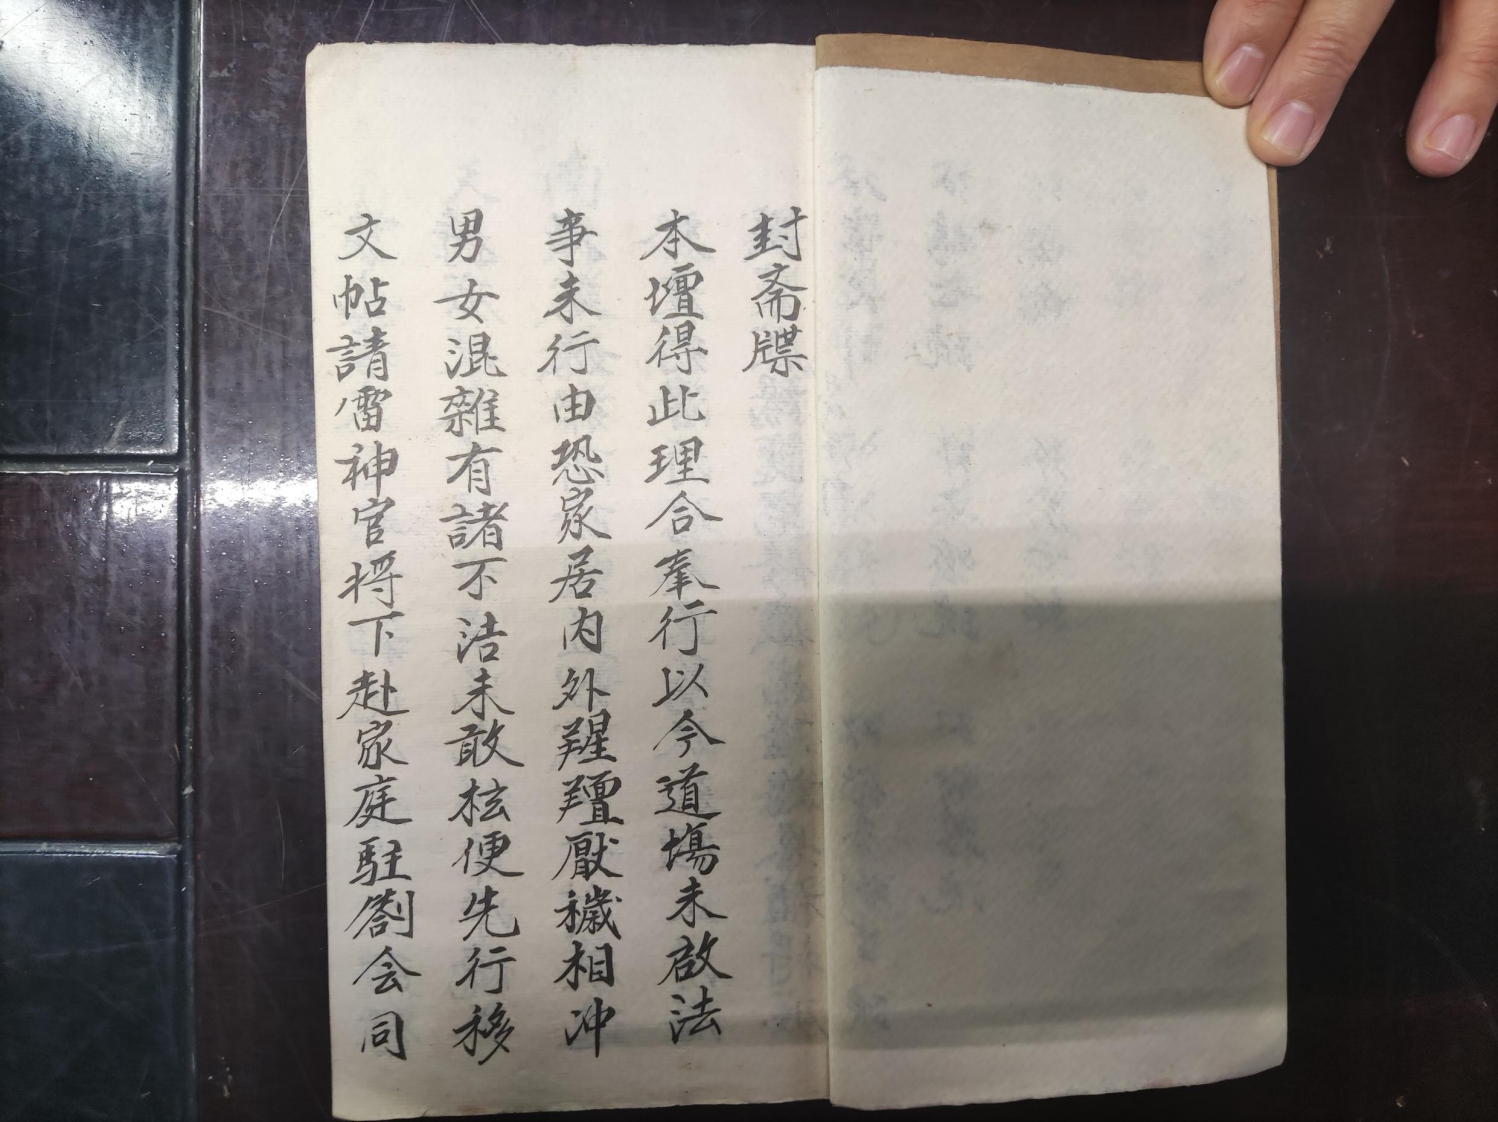 封斋牒
本壇得此理合奉行以今道塲未啟法
事未行由恐家居内外羥羶厭穢相冲
男女混雜有諸不洁未敢枟便先行移
文帖請雷神官将下赴家庭駐劄会同